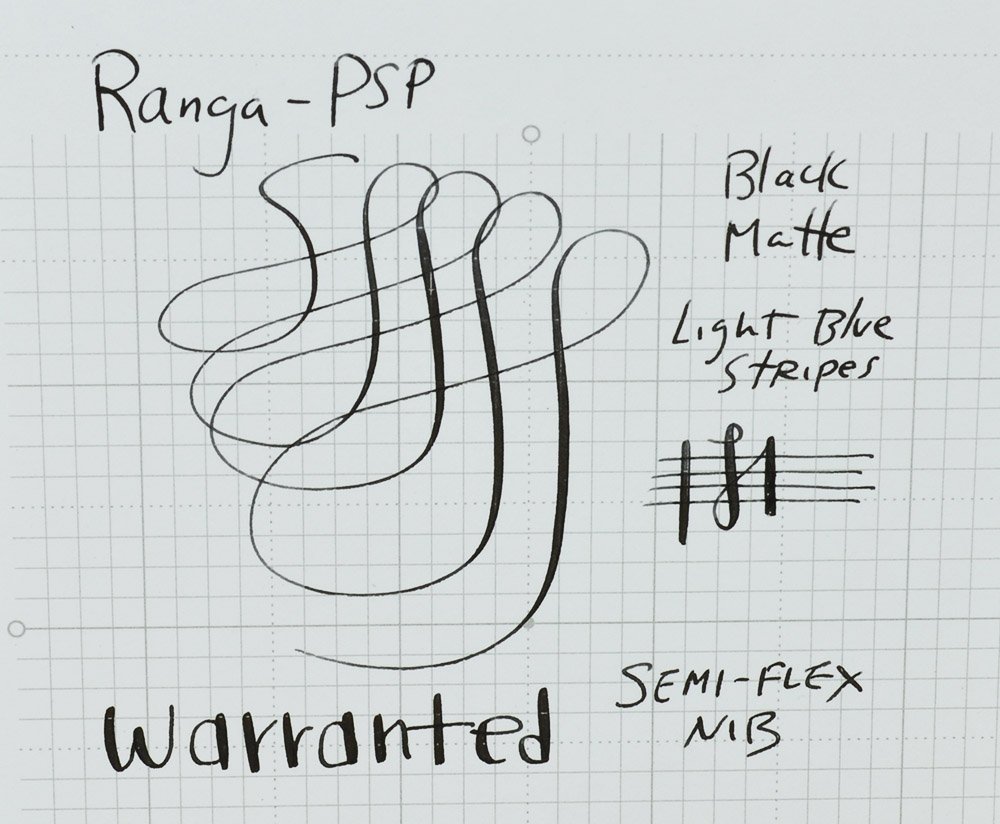 Ranga - PSP
Black
Matte
Light Blue
Stripes
Warranted
SEMI-FLEX
NIB